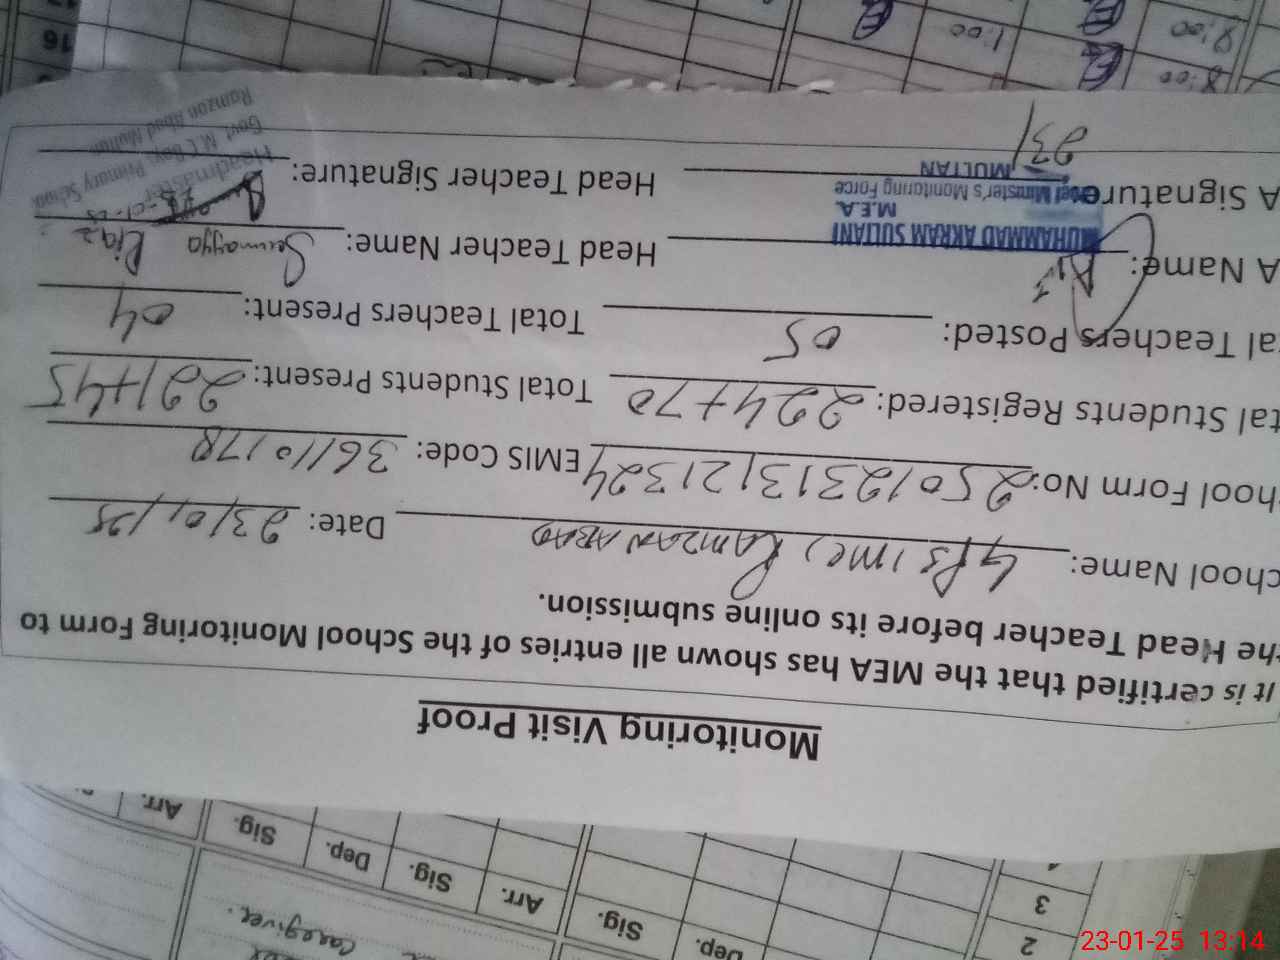 Monitoring Visit Proof
It is certified that the MEA has shown all entries of the School Monitoring Form to
he Head Teacher before its online submission.
chool Name: GPS (MC) RAMZAN ABAD Date: 23/01/25
hool Form No: 25012313121324 EMIS Code: 36110178
tal Students Registered: 224+70 Total Students Present: 221+45
al Teachers Posted: 05 Total Teachers Present: 04
A Name: Head Teacher Name: Sumayya Riaz
MUHAMMAD AKRAM SULTANI
M.E.A.
A Signature: Head Teacher Signature:
Chief Minister's Monitoring Force
MULTAN
23/
Headmaster
Govt. M.C Boys Primary School
Ramzan Abad Multan
16
8:00
1:00
8:00
2
3
Dep.
Sig.
Arr.
Sig.
Dep.
Sig.
Arr.
Caregiver.
23-01-25 13:14